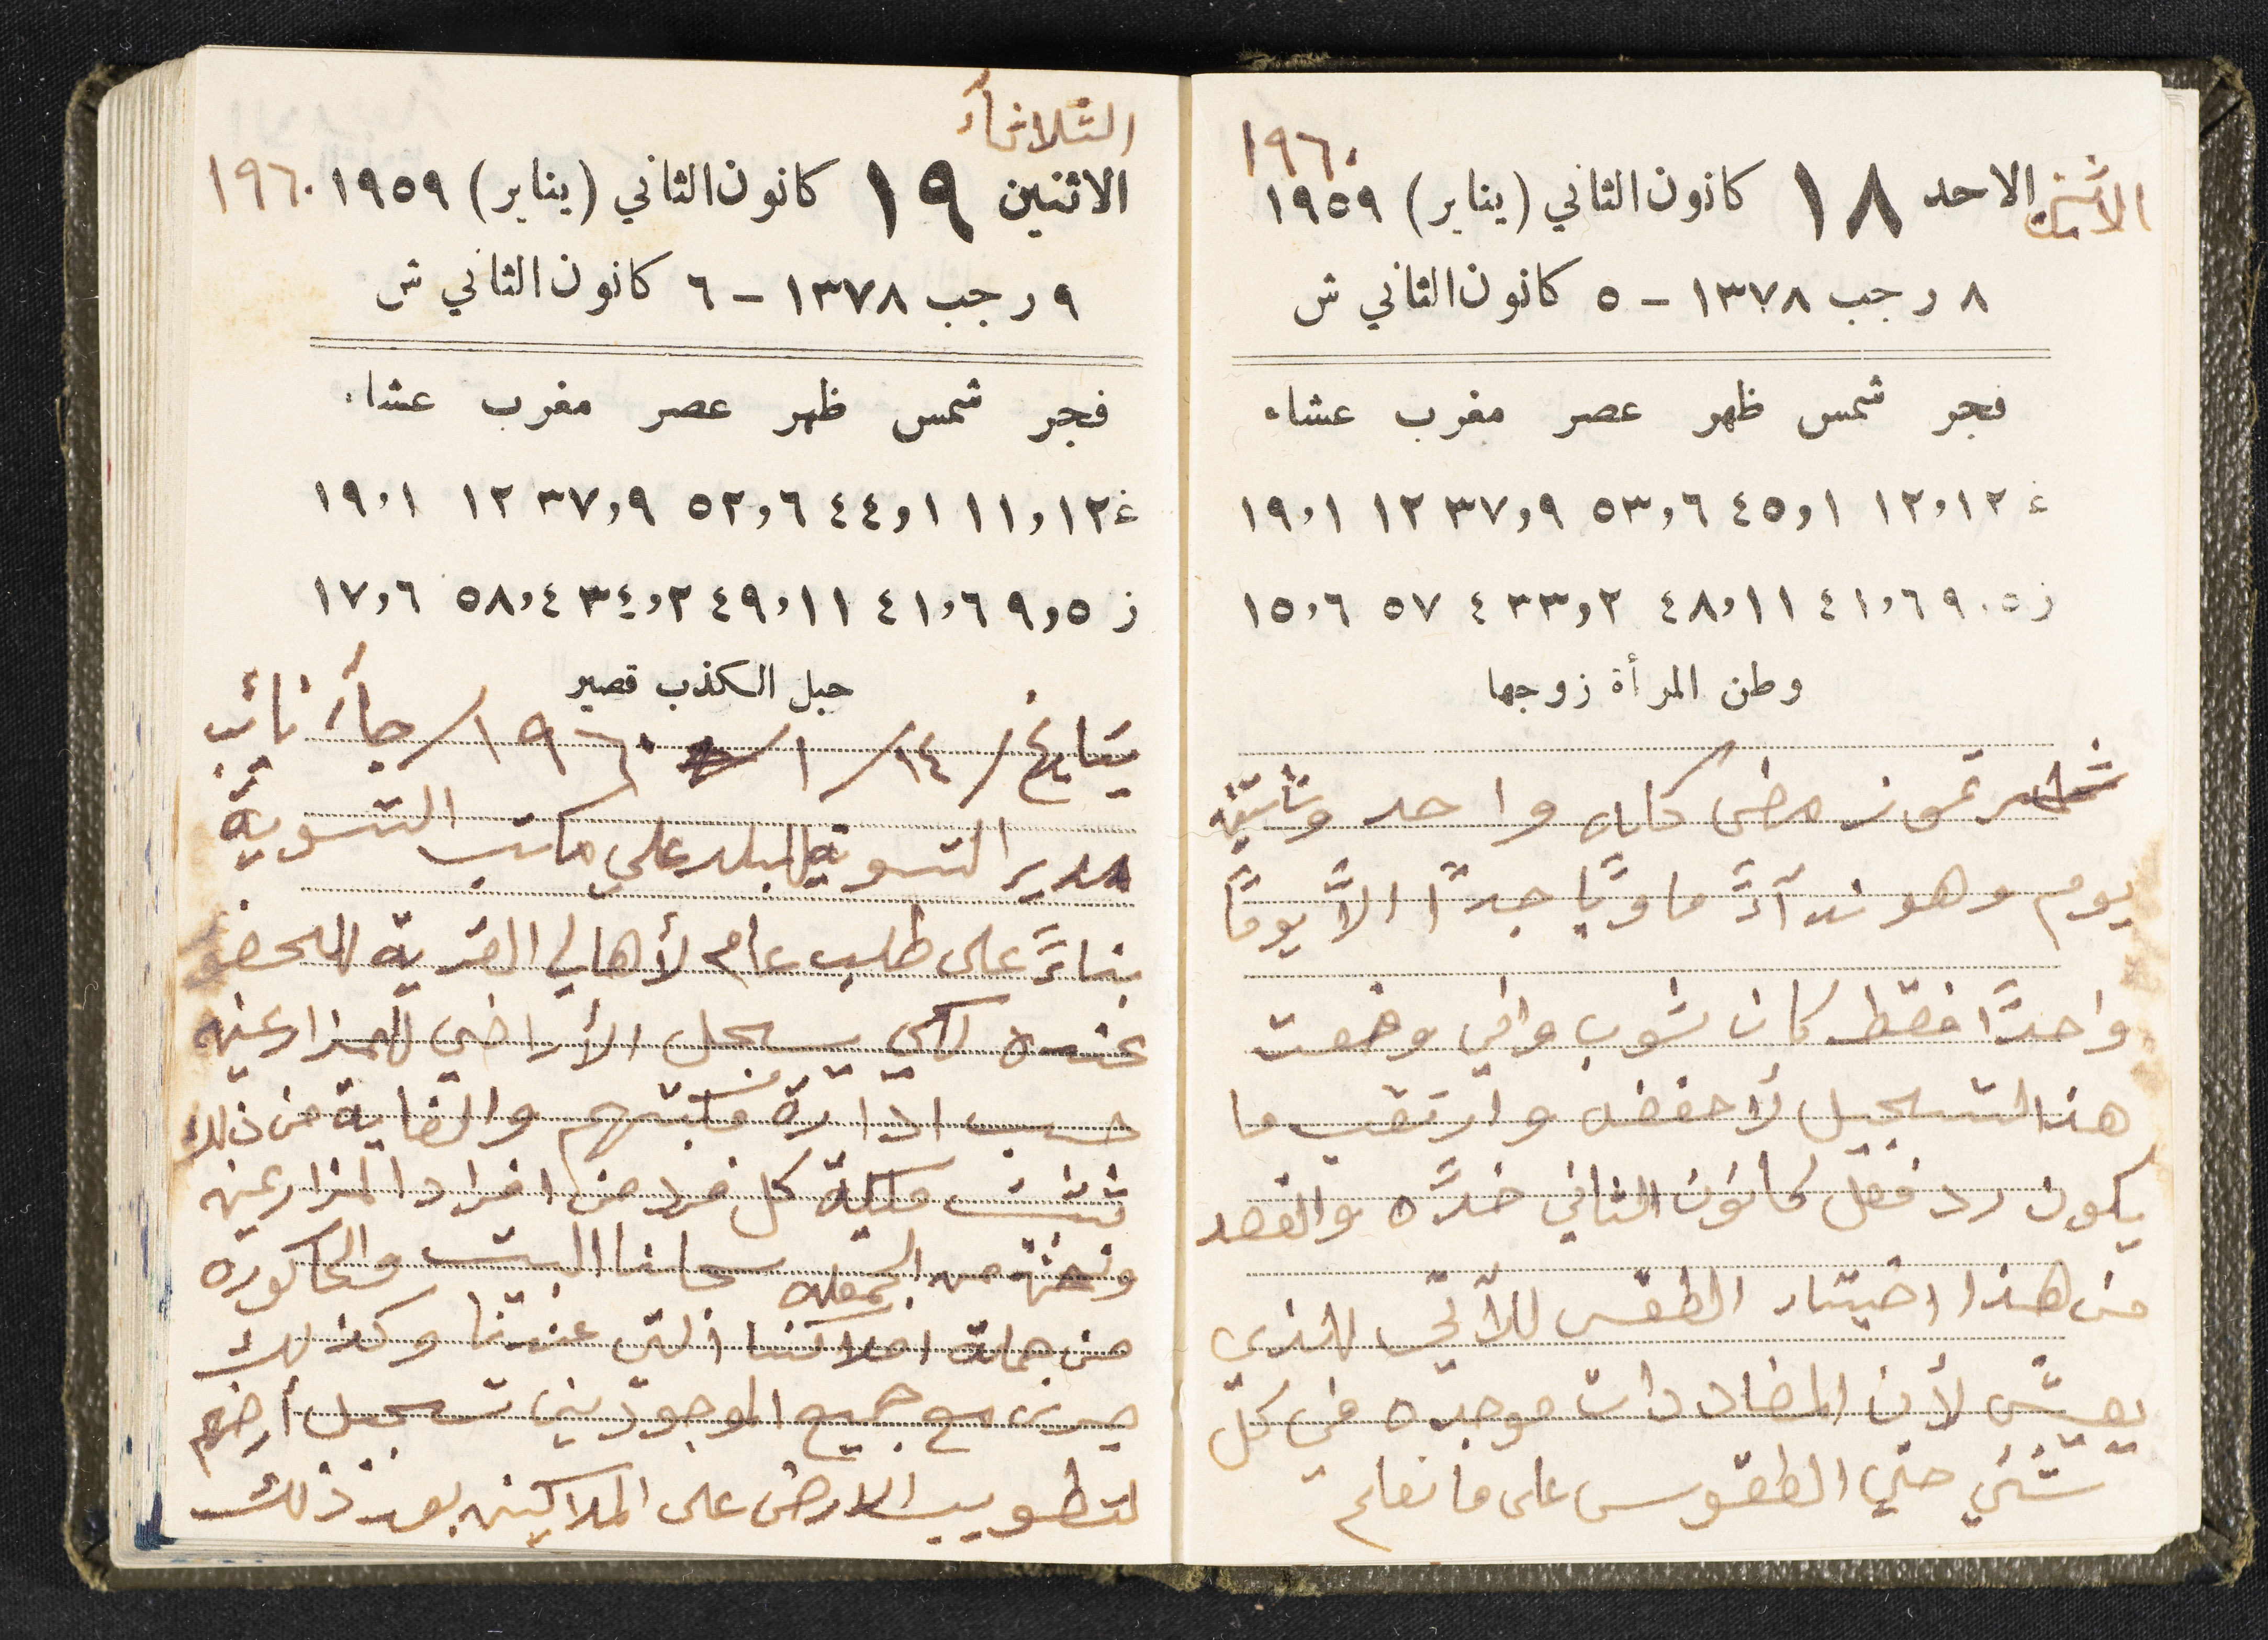 ١٩٦٠
الاثنين الاحد ١٨ كانون الثاني (يناير) ١٩٥٩
٨ رجب ١٣٧٨ – ٥ كانون الثاني ش
فجر شمس ظهر عصر مغرب عشاء
غ ١٢,١٢ ١,٤٥ ٦,٥٣ ٩,٣٧ ١٢ ١,١٩
ز ٥,٩ ٦,٤١ ١١,٤٨ ٢,٣٣ ٤ ٥٧ ٦,١٥
وطن المرأة زوجها
شهر تموز مضى كاي واحد وثلاثين
يوم وهو نداءً ماويًا جدًا الاَّ يومًا
واحدًا فقط كان شوب وافي وضعت
هذا التسجيل لأحفضه وارتقب ما
يكون رد فعل كانون الثاني ضدَّه والقصد
من هذا اختيار الطقس للآتي للذي
يعيش لأن المضادات موجده في كل
شئي حتي الطقوس على ما نعلم
الثلاثاء
الاثنين ١٩ كانون الثاني (يناير) ١٩٥٩ ١٩٦٠
٩ رجب ١٣٧٨ – ٦ كانون الثاني ش
فجر شمس ظهر عصر مغرب عشاء
غ ١٢,١١ ١,٤٤ ٦,٥٢ ٩,٣٧ ١٢ ١,١٩
ز ٥,٩ ٦,٤١ ١١,٤٩ ٢,٣٤ ٤,٥٨ ٦,١٧
حبل الكذب قصير
بتايخ / ١٤ / ١ / ١٩٦٠ / جاء نائب
مدير التسوية للبلد على مكتب التسوية
بناءً على طلب عام لأهالي القرية للحضور
عنده لكي يسجل الأراضي للمزارعين
حسب ادارة والغاية من ذلك
تثبت ملكية كل فرد من افراد المزارعين
ونحن من الجمله سجلنا البيت والحاكوره
من جملة املاكنا التي عندنا وكذلك
جرى مع جميع الموجودين تسجيل أرضهم
لتطويب الارض على الملاكين بعد ذلك